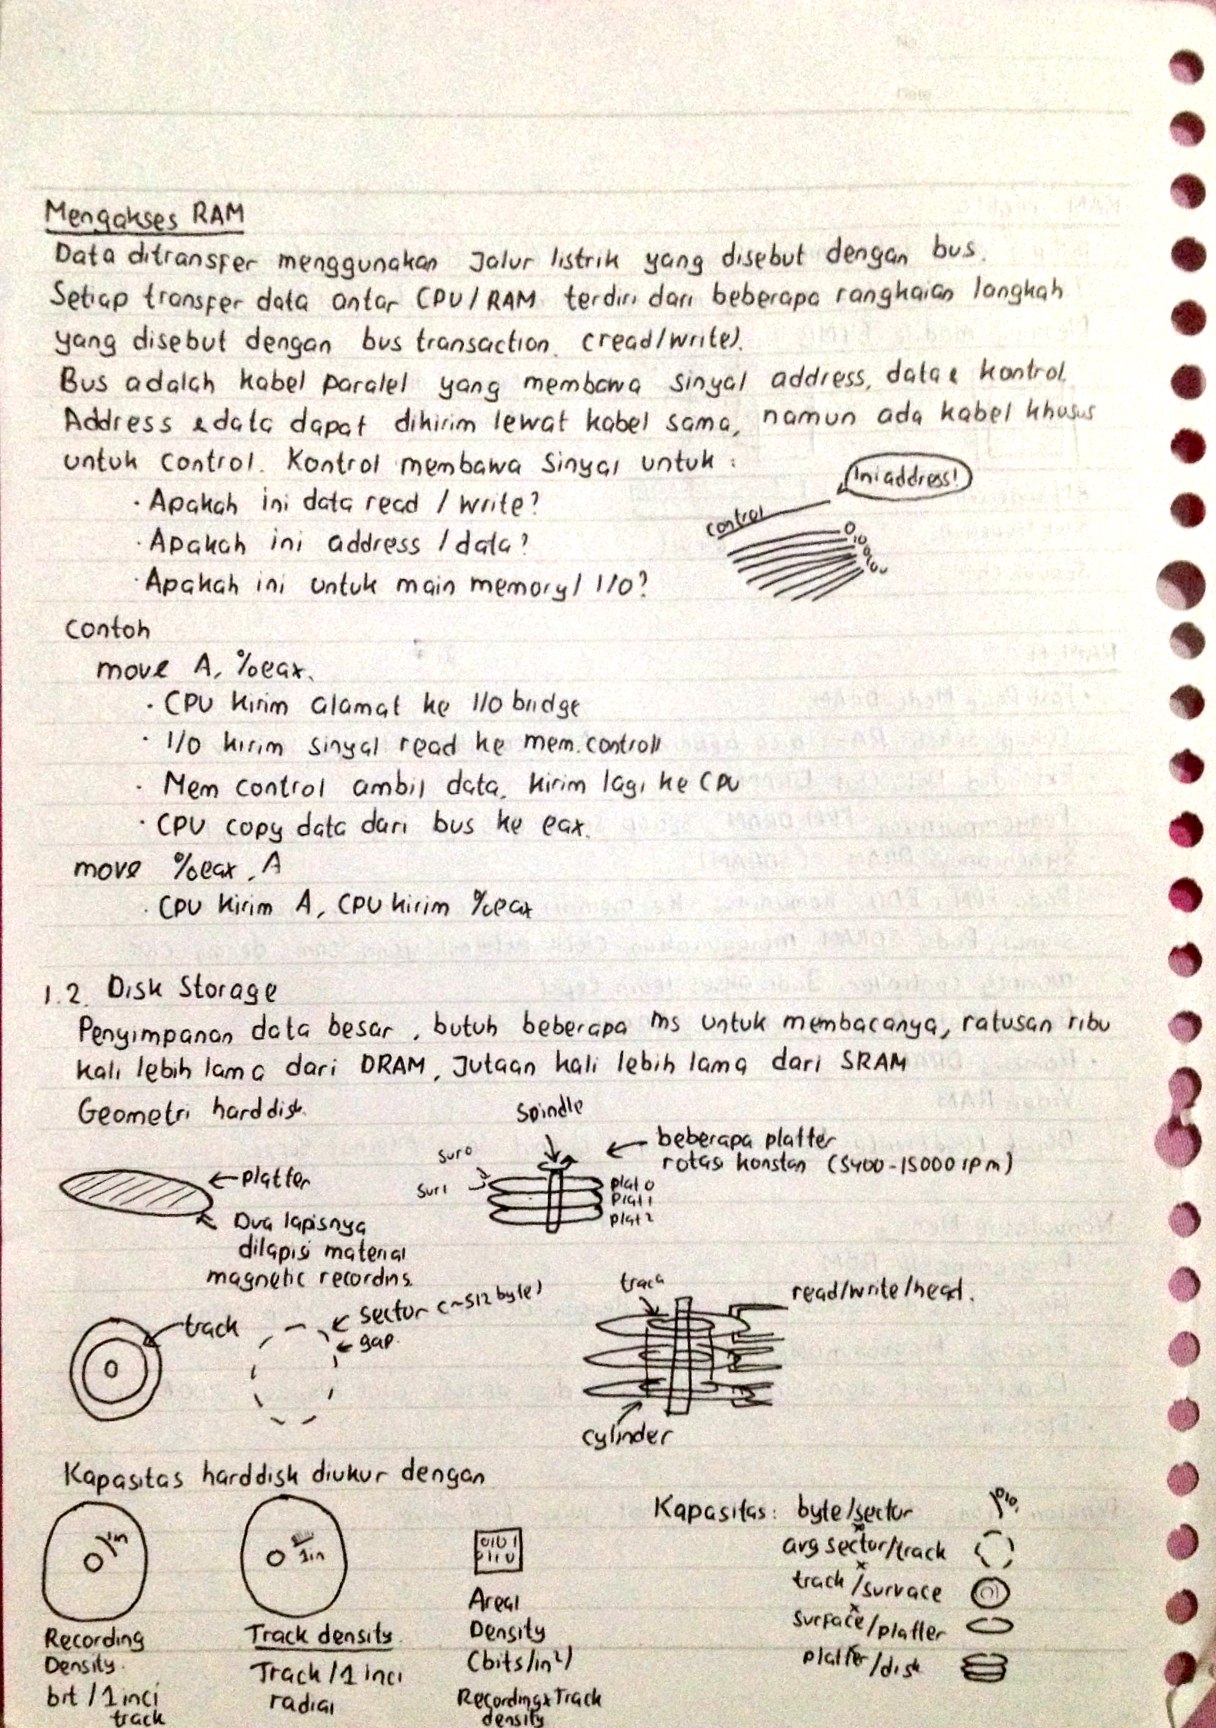 Mengakses RAM
Data ditransfer menggunakan Jalur listrik yang disebut dengan bus.
Setiap transfer data antar CPU/RAM terdiri dari beberapa rangkaian langkah
yang disebut dengan bus transaction. (read/write).
Bus adalah kabel paralel yang membawa sinyal address, data & kontrol.
Address & data dapat dikirim lewat kabel sama, namun ada kabel khusus
untuk control. Kontrol membawa Sinyal untuk :
Ini address!
· Apakah ini data read / write?
control
· Apakah ini address / data?
· Apakah ini untuk main memory / I/O?
Contoh
move A, %eax.
· CPU kirim alamat ke I/O bridge
· I/O kirim sinyal read ke mem. controll
· Mem control ambil data, kirim lagi ke CPU
· CPU copy data dari bus ke eax.
move %eax, A
· CPU kirim A, CPU kirim %eax
1.2. Disk Storage
Penyimpanan data besar, butuh beberapa ms untuk membacanya, ratusan ribu
kali lebih lama dari DRAM, Jutaan kali lebih lama dari SRAM
Geometri harddisk.
Spindle
beberapa platter
rotasi konstan (5400-15000 rpm)
sur0
sur1
plat 0
plat 1
plat 2
platter
Dua lapisnya
dilapisi material
magnetic recording.
track
sector (~512 byte)
gap.
track
read/write/head.
cylinder
Kapasitas harddisk diukur dengan
1in
1in
0101
0110
Recording
Density.
bit / 1 inci
track
Track density.
Track / 1 inci
radial
Areal
Density
(bits/in²)
Recording x Track
density
Kapasitas: byte/sector
x
avg sector/track
x
track/survace
x
surface/platter
platter/disk